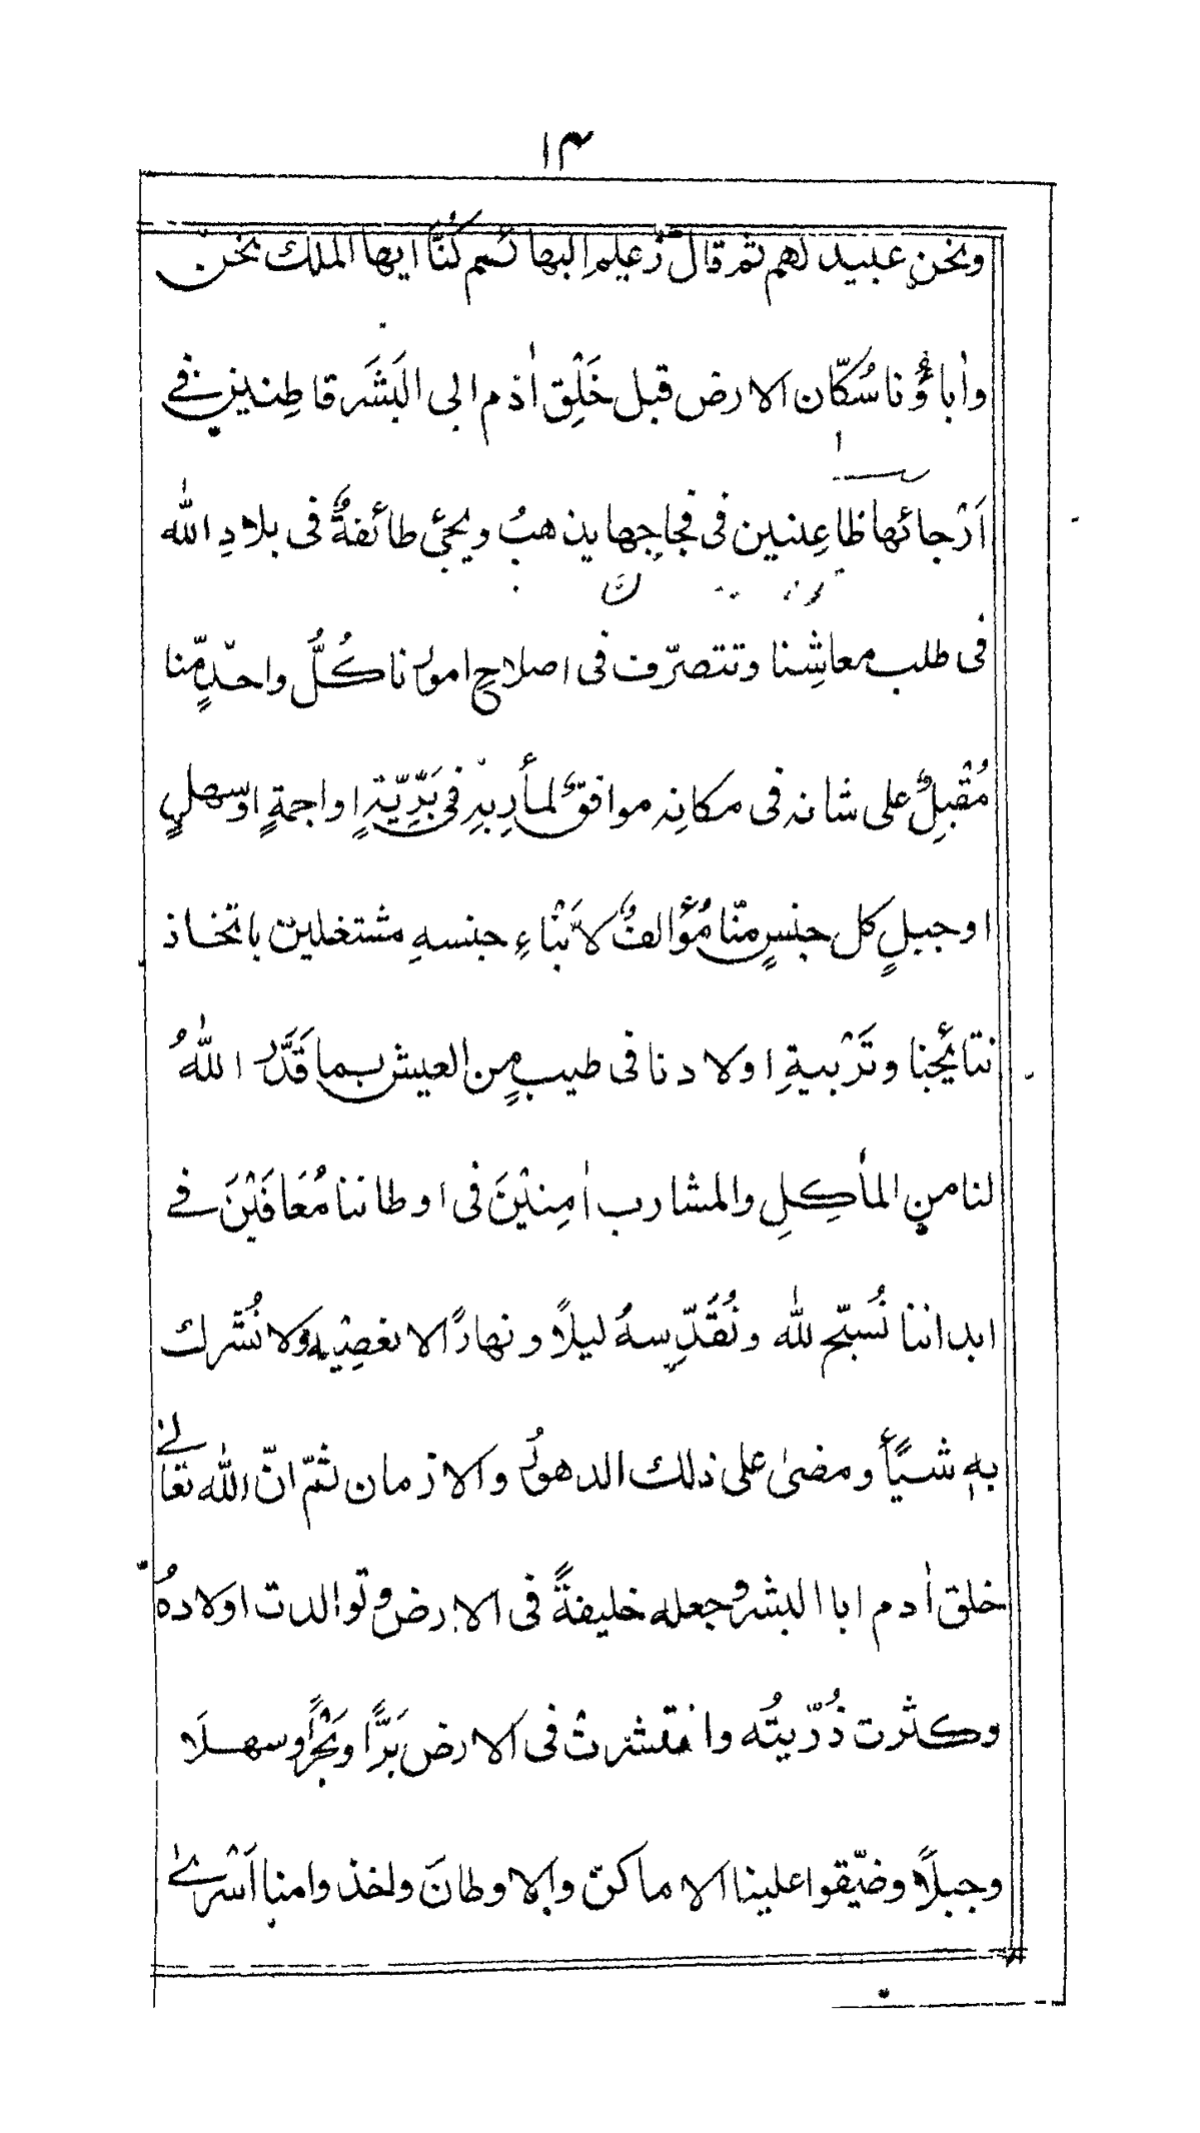 ۱۳
ونحن عبيد لهم ثم قال زعيم البهائم كُنَّا ايها الملك نحن
واٰباؤُنا سُكّان الارض قبل خَلْقِ اٰدم ابى البَشَر قاطِنين في
اَرْجائها ظاعِنين فى فجاجِها يذهبُ ويجئ طائفةٌ فى بلادِ الله
فى طلب معاشِنا وتتصرّف فى اصلاحِ امورنا كُلُّ واحدٍ مّنا
مُقْبِلٌ على شانه فى مكانِه موافقٌ لمأرِبِهِ فى بَرِّيَّةٍ او اجمةٍ او سهلٍ
او جبلٍ كل جنسٍ منّا مُؤالفٌ لاَبْنَاءِ جنسهِ مشتغلين باتخاذ
نتائجِنا وتَرْبيةِ اولادنا فى طيبٍ مِن العيش بما قَدَّر اللهُ
لنا من المأكِلِ والمشارب اٰمِنيْنَ فى اوطاننا مُعَافَيْنَ في
ابداننا نُسَبّح لله ونُقَدِّسهُ ليلًا ونهارًا لا نعصِيْهِ ولا نُشْرك
بهٖ شئًا ومضىٰ على ذلك الدهورُ والازمان ثمّ انّ الله تعالى
خلق اٰدم ابا البشر وجعله خليفةً فى الارض وتوالدت اولادهُ
وكثرت ذُرّيتُه وانتشرتْ فى الارض بَرًّا وبَحْرًا وسهلًا
وجبلًا وضيّقوا علينا الاماكنَ والاوطانَ واخذوا منا اَسْرىٰ